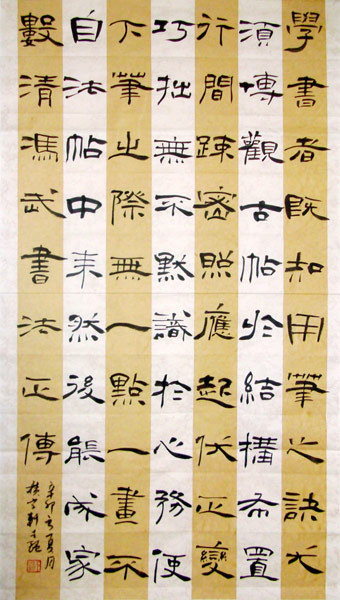 學書者既知用筆之訣尤
須博觀古帖於結構布置
行間疎密照應起伏正變
巧拙無不默識於心務使
下筆之際無一點一畫不
自法帖中来然後能成家
數清馮武書法正傳
辛卯夏月